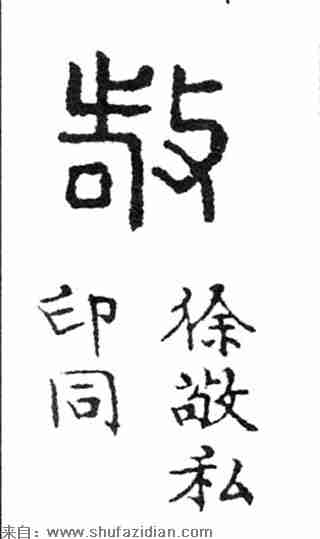 敬
徐敬私
印同
来自：www.shufazidian.com